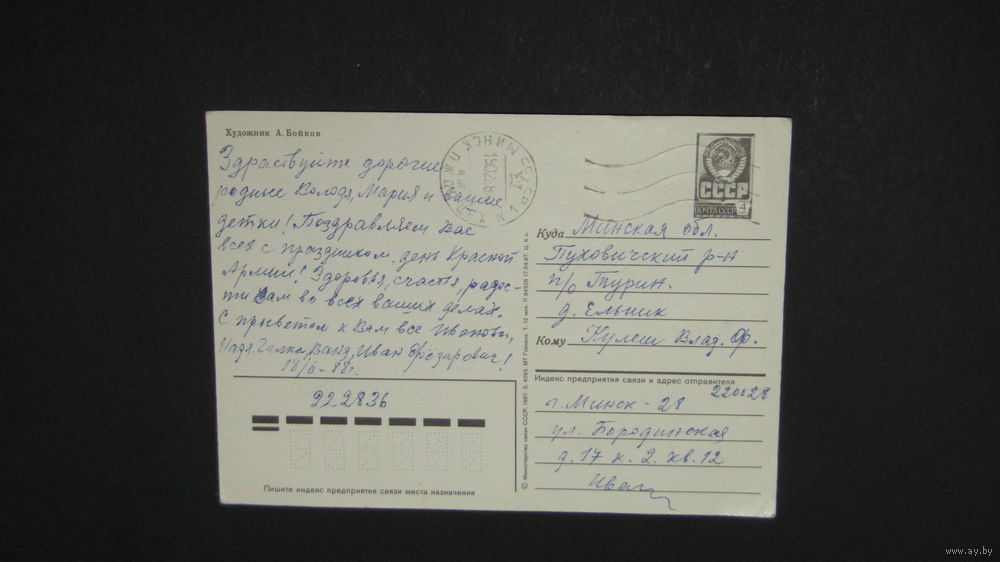 Художник А. Бойков
Здраствуйте дорогие
родные Володя, Мария и ваши
детки! Поздравляем Вас
всех с праздником, день Красной
Армии! Здоровья, счастья, радос-
ти Вам во всех ваших делах.
С приветом к Вам все
Надя, Ваня, Иван
18/II-88г.
922836
Пишите индекс предприятия связи места назначения
МИНСК
СССР
ПОЧТА СССР
4
Куда Минская обл.
Пуховичский р-н
п/о Турин.
д. Ельник
Кому Кулеш Влад. Ф.
Индекс предприятия связи и адрес отправителя
220028
г. Минск - 28
ул. Бородинская
д. 17 к. 2. кв. 12
© Министерство связи СССР, 1987. З. 4093. МТ Гознака. Т. 12 млн.
www.ay.by